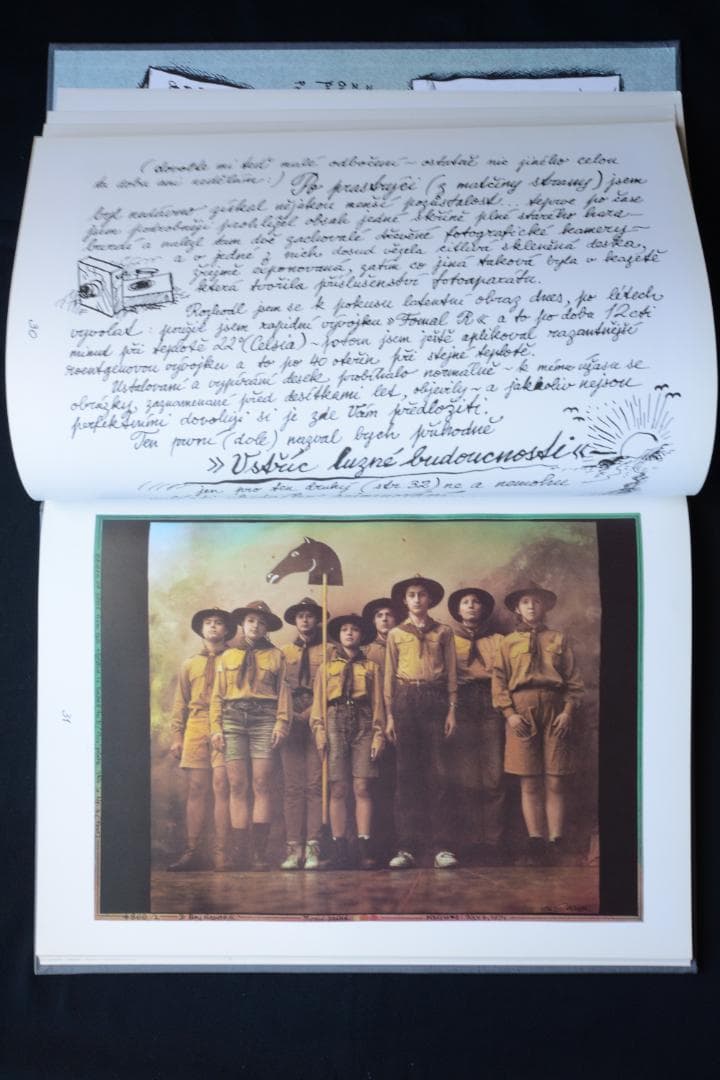 (dovolte mi teď malé odbočení – ostatně nic jiného celou
tu dobu ani nedělám:) Po prastrýci (z matčiny strany) jsem
byl nedávno získal nějakou menší pozůstalost... teprve po čase
jsem podrobněji prohlížel obsah jedné skříně plné starého hara-
burdí a nalezl tam dvě zachovalé dřevěné fotografické kamery –
a v jedné z nich dosud vězela citlivá skleněná deska,
zřejmě exponovaná, zatím co jiná taková byla v kazetě
která tvořila příslušenství fotoaparátu.
Rozhodl jsem se k pokusu latentní obraz dnes, po létech
vyvolat: použil jsem rapidní vývojku »Fomal R« a to po dobu 12cti
minut při teplotě 22° (Celsia) – potom jsem ještě aplikoval razantnější
roentgenovou vývojku a to po 40 vteřin při stejné teplotě.
Ustalování a vypírání desek probíhalo normálně – k mému úžasu se
obrázky, zaznamenané před desítkami let, objevily – a jakkoliv nejsou
perfektními dovoluji si je zde Vám předložiti.
Ten první (dole) nazval bych příhodně
»Vstříc luzné budoucnosti«
jen pro ten druhý (str 32) ne a nemohu
30
31